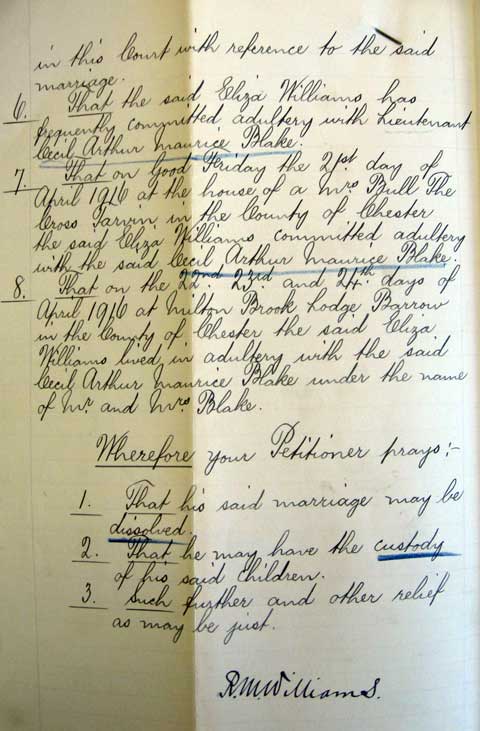 in this Court with reference to the said
marriage.
6. That the said Eliza Williams has
frequently committed adultery with Lieutenant
Cecil Arthur Maurice Blake.
7. That on Good Friday the 21st day of
April 1916 at the house of a Mrs Bull The
Cross Tarvin in the County of Chester
the said Eliza Williams committed adultery
with the said Cecil Arthur Maurice Blake.
8. That on the 22nd 23rd and 24th days of
April 1916 at Milton Brook Lodge Barrow
in the County of Chester the said Eliza
Williams lived in adultery with the said
Cecil Arthur Maurice Blake under the name
of Mr and Mrs Blake.
Wherefore your Petitioner prays:-
1. That his said marriage may be
dissolved.
2. That he may have the custody
of his said children.
3. Such further and other relief
as may be just.
R.M.Williams.